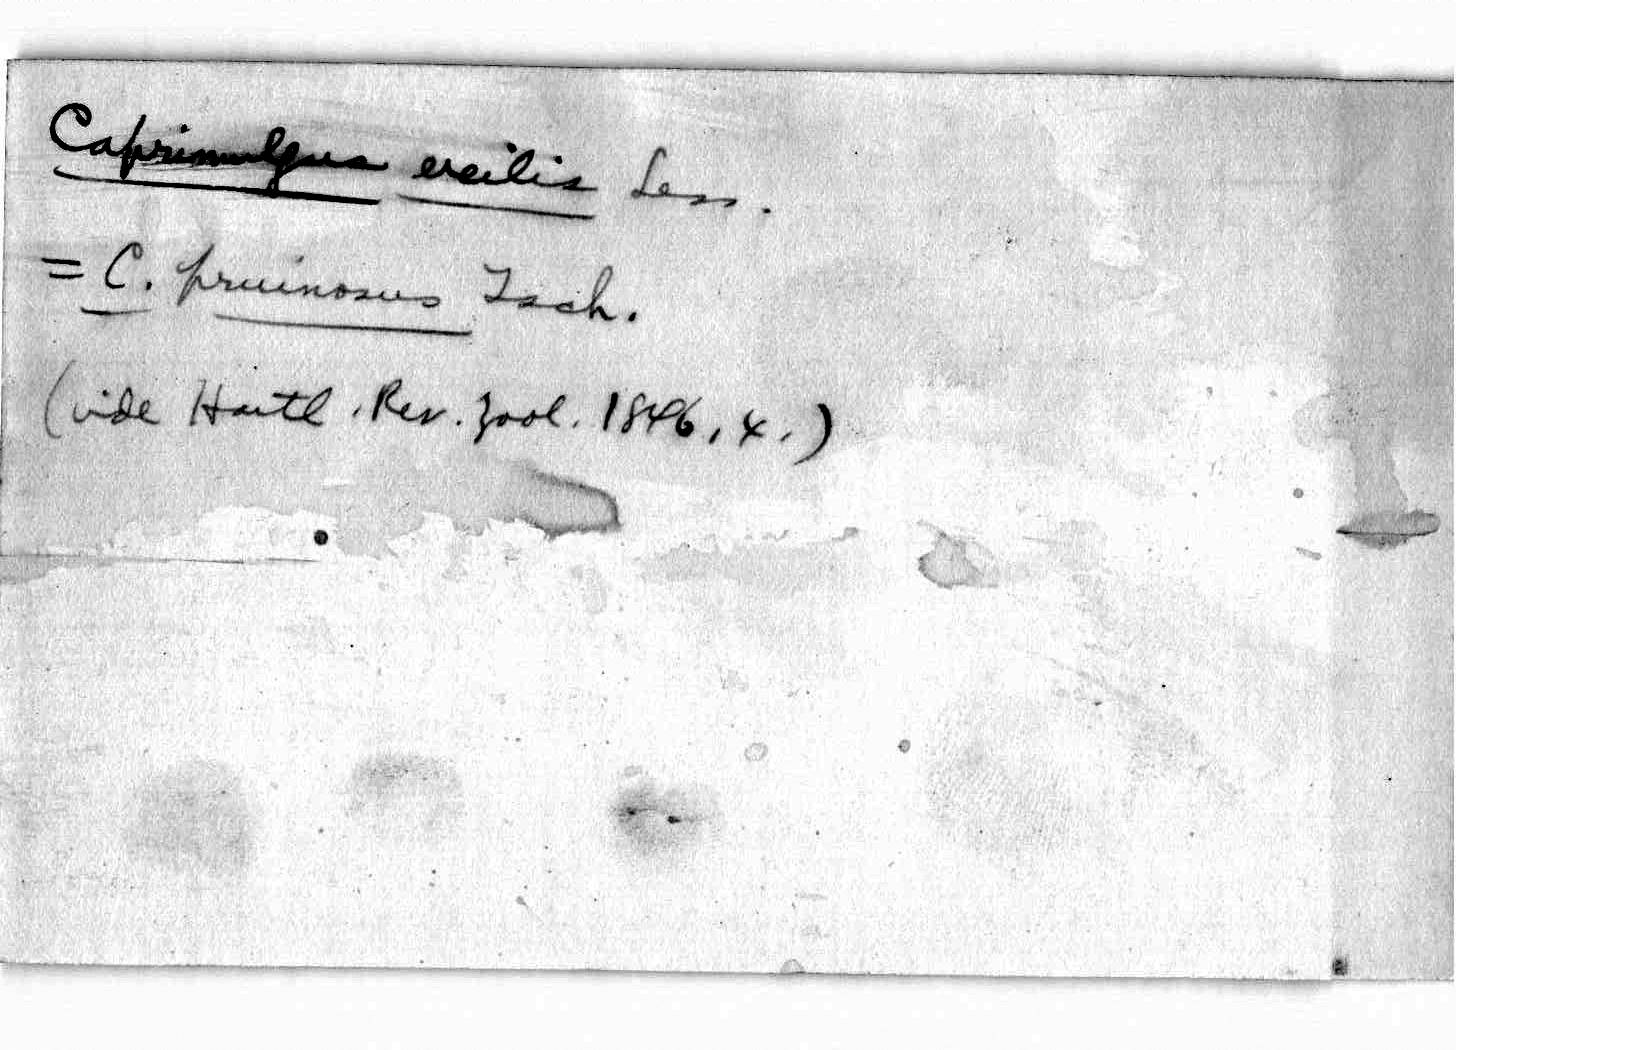 Caprimulgus exilis Less.
= C. pruinosus Tsch.
(vide Hartl. Rev. Zool. 1846, 4.)